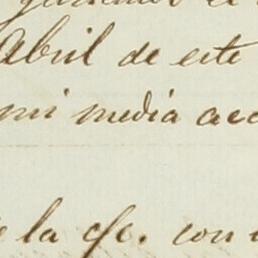 Abril de este
mi media acc
la cfe. con